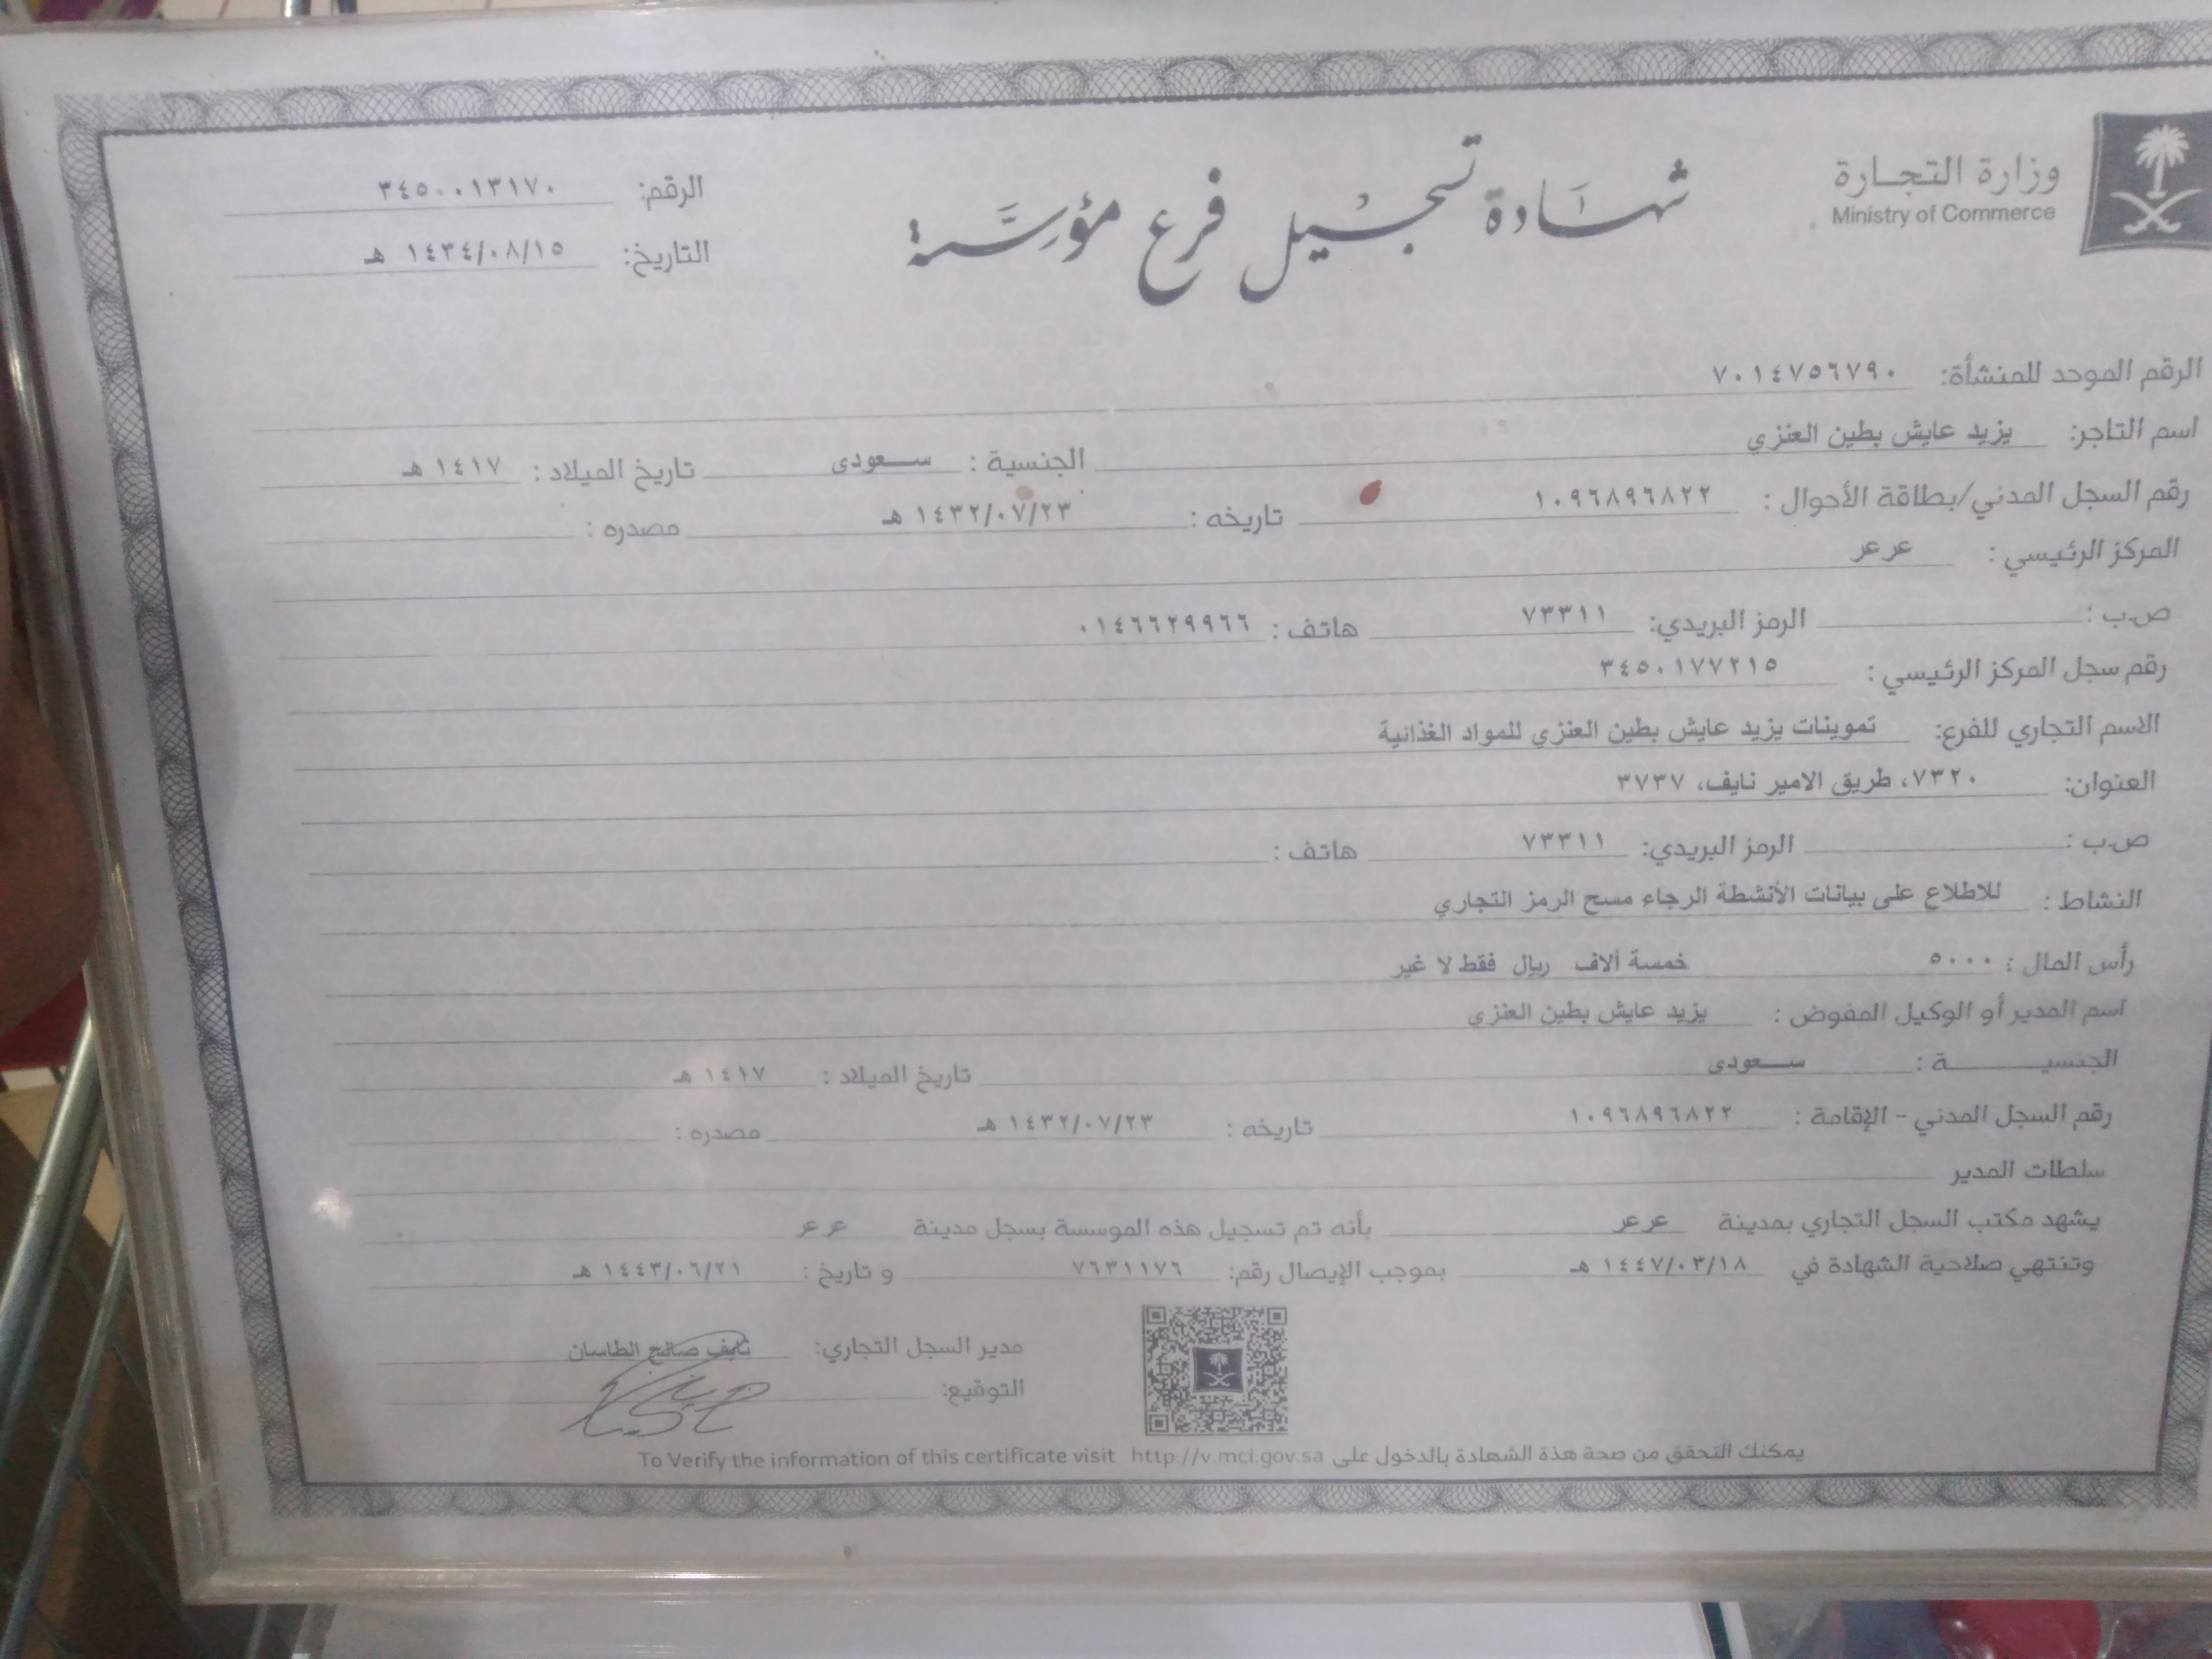 وزارة التجارة
Ministry of Commerce
شهادة تسجيل فرع مؤسسة
الرقم: ٣٤٥٠٠١٣١٧٠
التاريخ: ١٤٣٤/٠٨/١٥ هـ
الرقم الموحد للمنشأة: ٧٠١٤٧٥٦٧٩٠
اسم التاجر: يزيد عايش بطين العنزي الجنسية : سعودى تاريخ الميلاد : ١٤١٧ هـ
رقم السجل المدني/بطاقة الأحوال : ١٠٩٦٨٩٦٨٢٢ تاريخه : ١٤٣٢/٠٧/٢٣ هـ مصدره :
المركز الرئيسي : عرعر
ص.ب : الرمز البريدي: ٧٣٣١١ هاتف : ٠١٤٦٦٢٩٩٦٦
رقم سجل المركز الرئيسي : ٣٤٥٠١٧٧٢١٥
الاسم التجاري للفرع: تموينات يزيد عايش بطين العنزي للمواد الغذائية
العنوان: ٧٣٢٠، طريق الامير نايف، ٣٧٣٧
ص.ب : الرمز البريدي: ٧٣٣١١ هاتف :
النشاط : للاطلاع على بيانات الأنشطة الرجاء مسح الرمز التجاري
رأس المال : ٥٠٠٠ خمسة آلاف ريال فقط لا غير
اسم المدير أو الوكيل المفوض : يزيد عايش بطين العنزي
الجنسيـــــة : سعودى تاريخ الميلاد : ١٤١٧ هـ
رقم السجل المدني - الإقامة : ١٠٩٦٨٩٦٨٢٢ تاريخه : ١٤٣٢/٠٧/٢٣ هـ مصدره :
سلطات المدير
يشهد مكتب السجل التجاري بمدينة عرعر بأنه تم تسجيل هذه الموسسة بسجل مدينة عرعر
وتنتهي صلاحية الشهادة في ١٤٤٧/٠٣/١٨ هـ بموجب الإيصال رقم: ٧٦٣١١٧٦ و تاريخ : ١٤٤٣/٠٦/٢١ هـ
مدير السجل التجاري: نايف صالح الطاسان
التوقيع:
يمكنك التحقق من صحة هذة الشهادة بالدخول على To Verify the information of this certificate visit http://v.mci.gov.sa